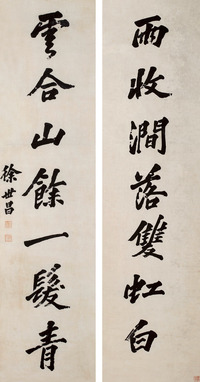 雨收澗落雙虹白
雲合山餘一髮青
徐世昌